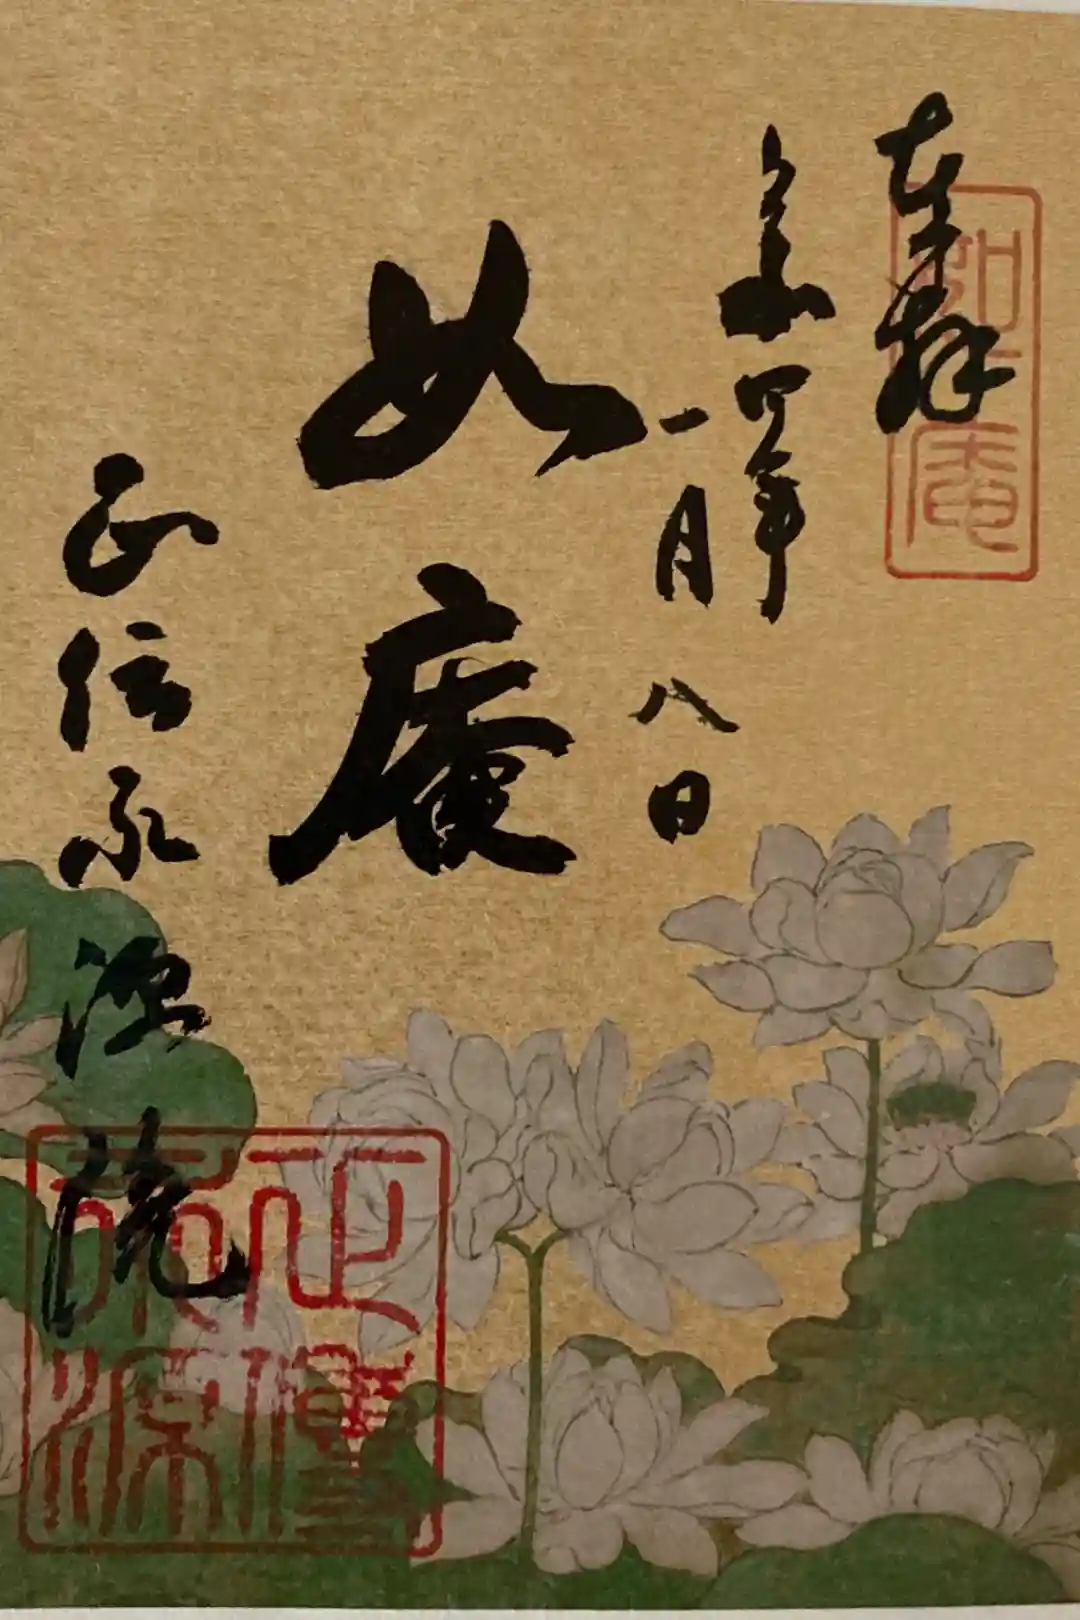 奉拝
如庵
令和四年
一月八日
如庵
正伝永源院
正傳
永源